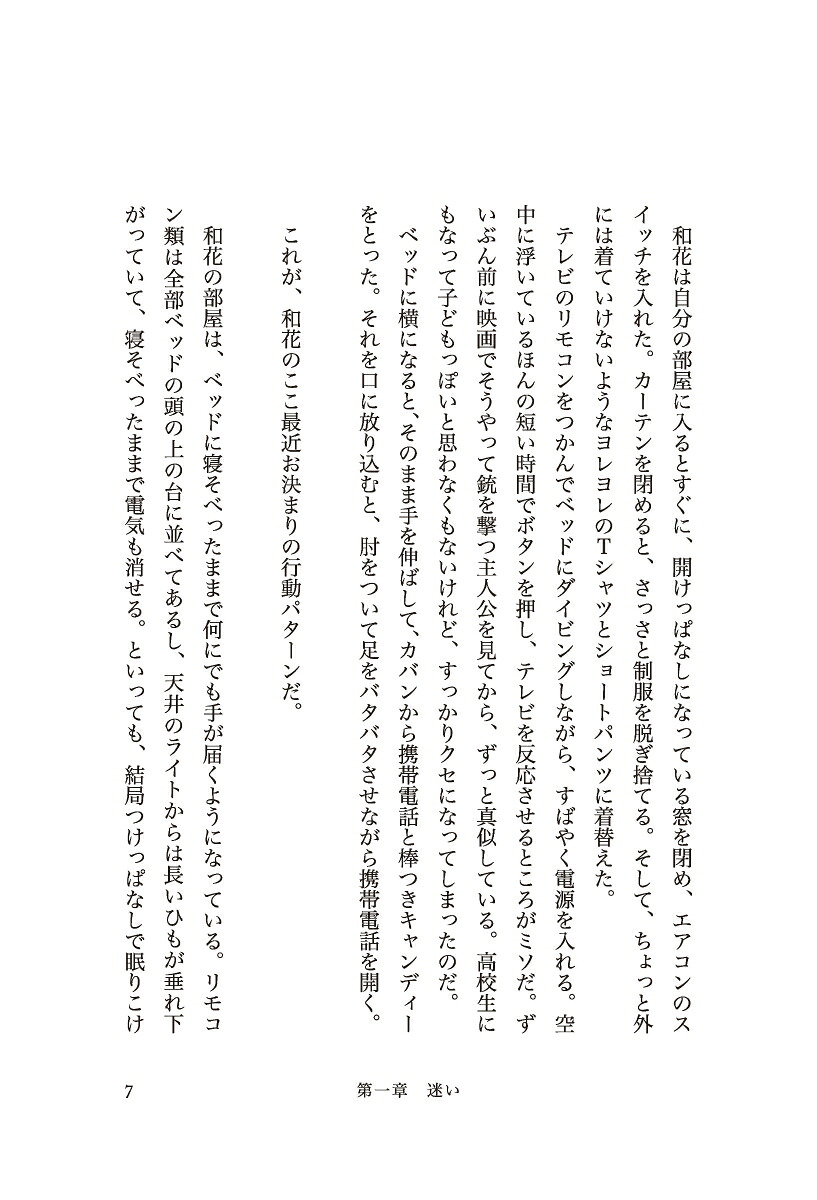 和花は自分の部屋に入るとすぐに、開けっぱなしになっている窓を閉め、エアコンのス
イッチを入れた。カーテンを閉めると、さっさと制服を脱ぎ捨てる。そして、ちょっと外
には着ていけないようなヨレヨレのTシャツとショートパンツに着替えた。
　テレビのリモコンをつかんでベッドにダイビングしながら、すばやく電源を入れる。空
中に浮いているほんの短い時間でボタンを押し、テレビを反応させるところがミソだ。ず
いぶん前に映画でそうやって銃を撃つ主人公を見てから、ずっと真似している。高校生に
もなって子どもっぽいと思わなくもないけれど、すっかりクセになってしまったのだ。
　ベッドに横になると、そのまま手を伸ばして、カバンから携帯電話と棒つきキャンディー
をとった。それを口に放り込むと、肘をついて足をバタバタさせながら携帯電話を開く。
　これが、和花のここ最近お決まりの行動パターンだ。
　和花の部屋は、ベッドに寝そべったままで何にでも手が届くようになっている。リモコ
ン類は全部ベッドの頭の上の台に並べてあるし、天井のライトからは長いひもが垂れ下
がっていて、寝そべったままで電気も消せる。といっても、結局つけっぱなしで眠りこけ
第一章　迷い
7